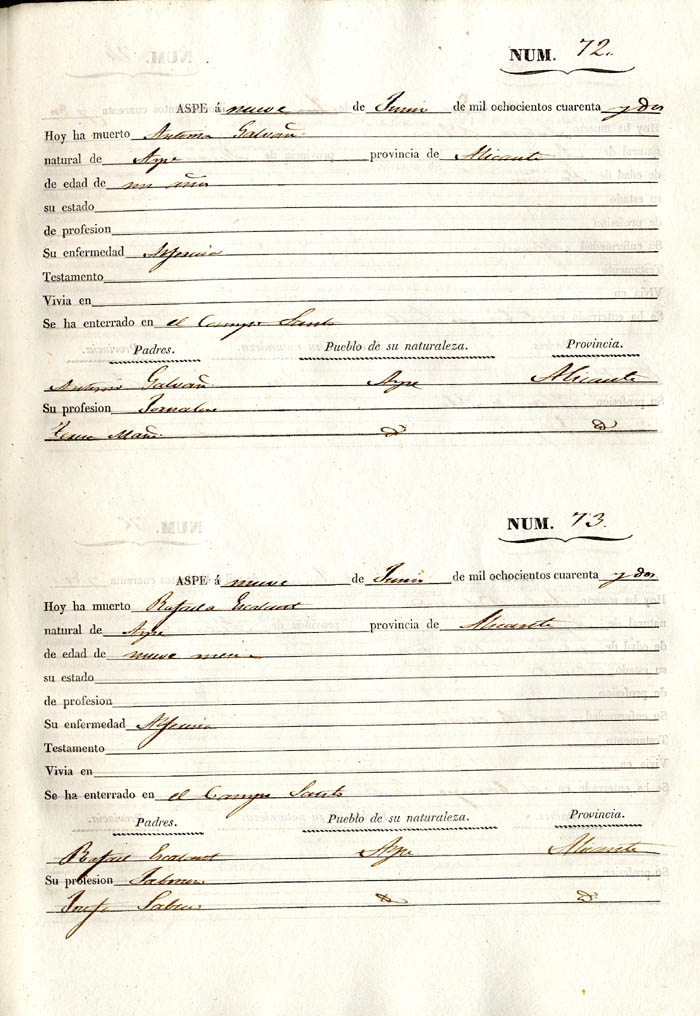 NUM. 72.
ASPE á nueve de Junio de mil ochocientos cuarenta y dos
Hoy ha muerto Antonia Galvañ
natural de Aspe provincia de Alicante
de edad de un año
su estado
de profesion
Su enfermedad Alferecia
Testamento
Vivia en
Se ha enterrado en el Campo Santo
Padres. Pueblo de su naturaleza. Provincia.
Antonio Galvañ Aspe Alicante
Su profesion Jornalero
Mañ
NUM. 73.
ASPE á nueve de Junio de mil ochocientos cuarenta y dos
Hoy ha muerto Rafaela Escolano
natural de Aspe provincia de Alicante
de edad de nueve meses
su estado
de profesion
Su enfermedad Alferecia
Testamento
Vivia en
Se ha enterrado en el Campo Santo
Padres. Pueblo de su naturaleza. Provincia.
Rafael Escolano Aspe Alicante
Su profesion
Josefa